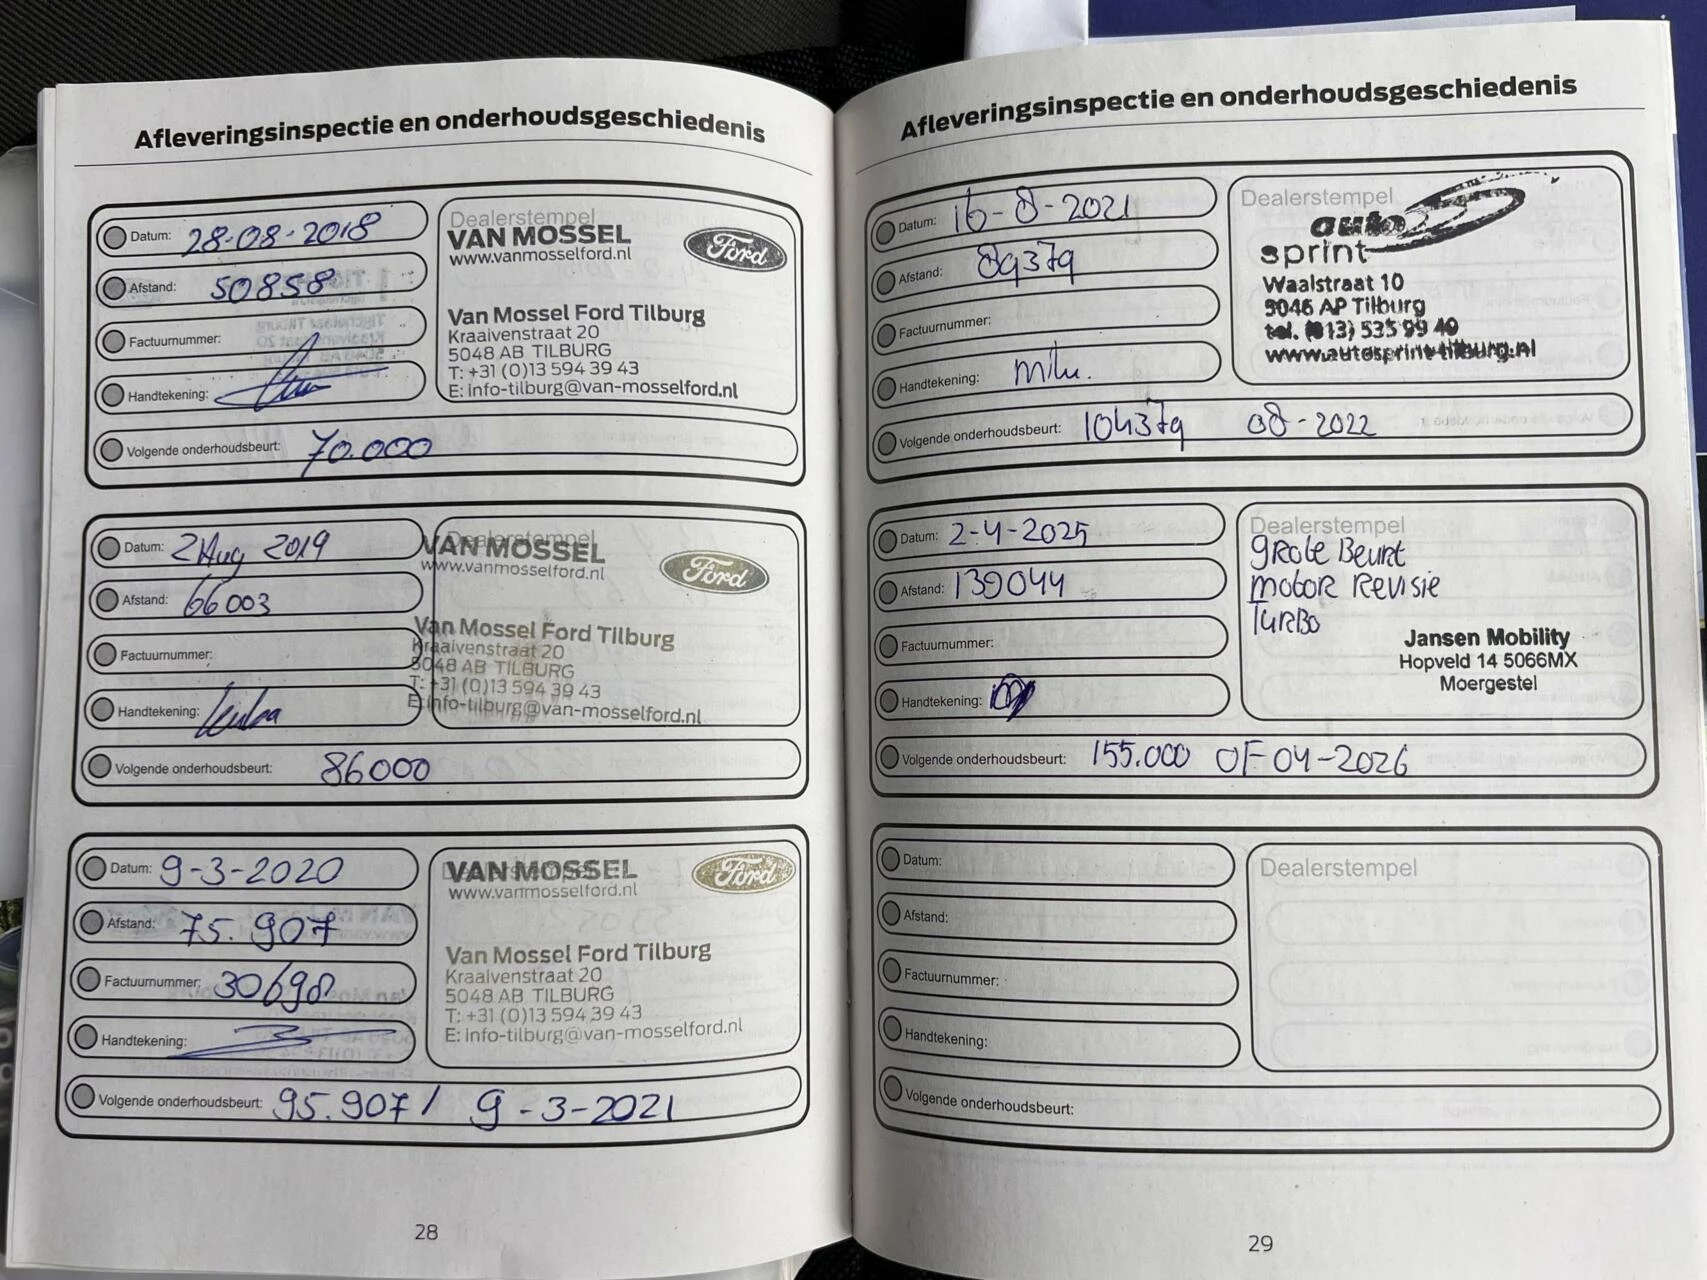 Afleveringsinspectie en onderhoudsgeschiedenis
Datum: 28-08-2018
Afstand: 50858
Factuurnummer:
Handtekening:
Volgende onderhoudsbeurt: 70.000
Dealerstempel
VAN MOSSEL
www.vanmosselford.nl
Ford
Van Mossel Ford Tilburg
Kraaivenstraat 20
5048 AB TILBURG
T: +31 (0)13 594 39 43
E: Info-tilburg@van-mosselford.nl
Datum: 2 Aug 2019
Afstand: 66003
Factuurnummer:
Handtekening:
Volgende onderhoudsbeurt: 86000
Dealerstempel
VAN MOSSEL
www.vanmosselford.nl
Ford
Van Mossel Ford Tilburg
Kraaivenstraat 20
5048 AB TILBURG
T: +31 (0)13 594 39 43
E: Info-tilburg@van-mosselford.nl
Datum: 9-3-2020
Afstand: 75.907
Factuurnummer: 30698
Handtekening:
Volgende onderhoudsbeurt: 95.907 / 9-3-2021
Dealerstempel
VAN MOSSEL
www.vanmosselford.nl
Ford
Van Mossel Ford Tilburg
Kraaivenstraat 20
5048 AB TILBURG
T: +31 (0)13 594 39 43
E: Info-tilburg@van-mosselford.nl
28
Afleveringsinspectie en onderhoudsgeschiedenis
Datum: 16-8-2021
Afstand: 89379
Factuurnummer:
Handtekening:
Volgende onderhoudsbeurt: 104379 08-2022
Dealerstempel
auto
sprint
Waalstraat 10
5046 AP Tilburg
tel. (013) 535 99 40
www.autosprint-tilburg.nl
Datum: 2-4-2025
Afstand: 139044
Factuurnummer:
Handtekening:
Volgende onderhoudsbeurt: 155.000 OF 04-2026
Dealerstempel
grote Beurt
motor Revisie
Turbo
Jansen Mobility
Hopveld 14 5066MX
Moergestel
Datum:
Afstand:
Factuurnummer:
Handtekening:
Volgende onderhoudsbeurt:
Dealerstempel
29